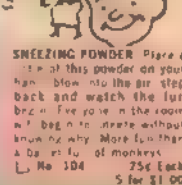 SNEEZING POWDER Place a
of this powder on your
blow into the air step
back and watch the fun
Everyone in the room
will begin to without
knowing why More fun than
a of monkeys
No 104 25¢ Each
5 for $1 00